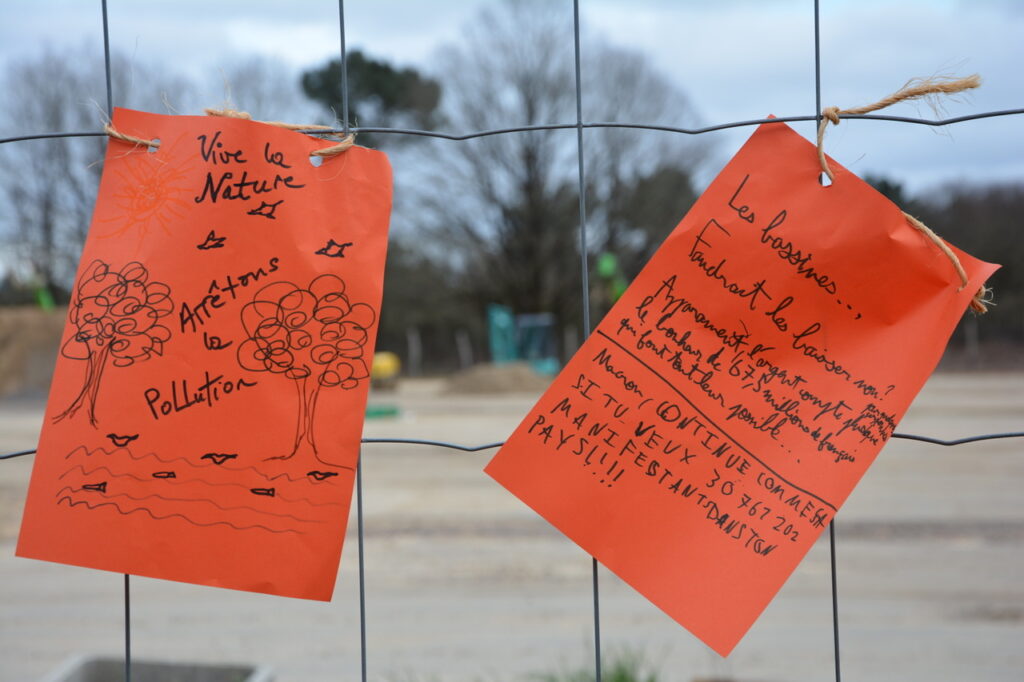 Vive la
Nature
Arrêtons
la
Pollution
Les bassines...,
Faudrait les baisser non?
Apparament l'argent compte plus que
le bonheur de 67,5 millions de français
qui font tout leur possible...
Macron, CONTINUE COMME ÇA
SI TU VEUX 30 767 202
MANIFESTANTS DANS TON
PAYS!!!!